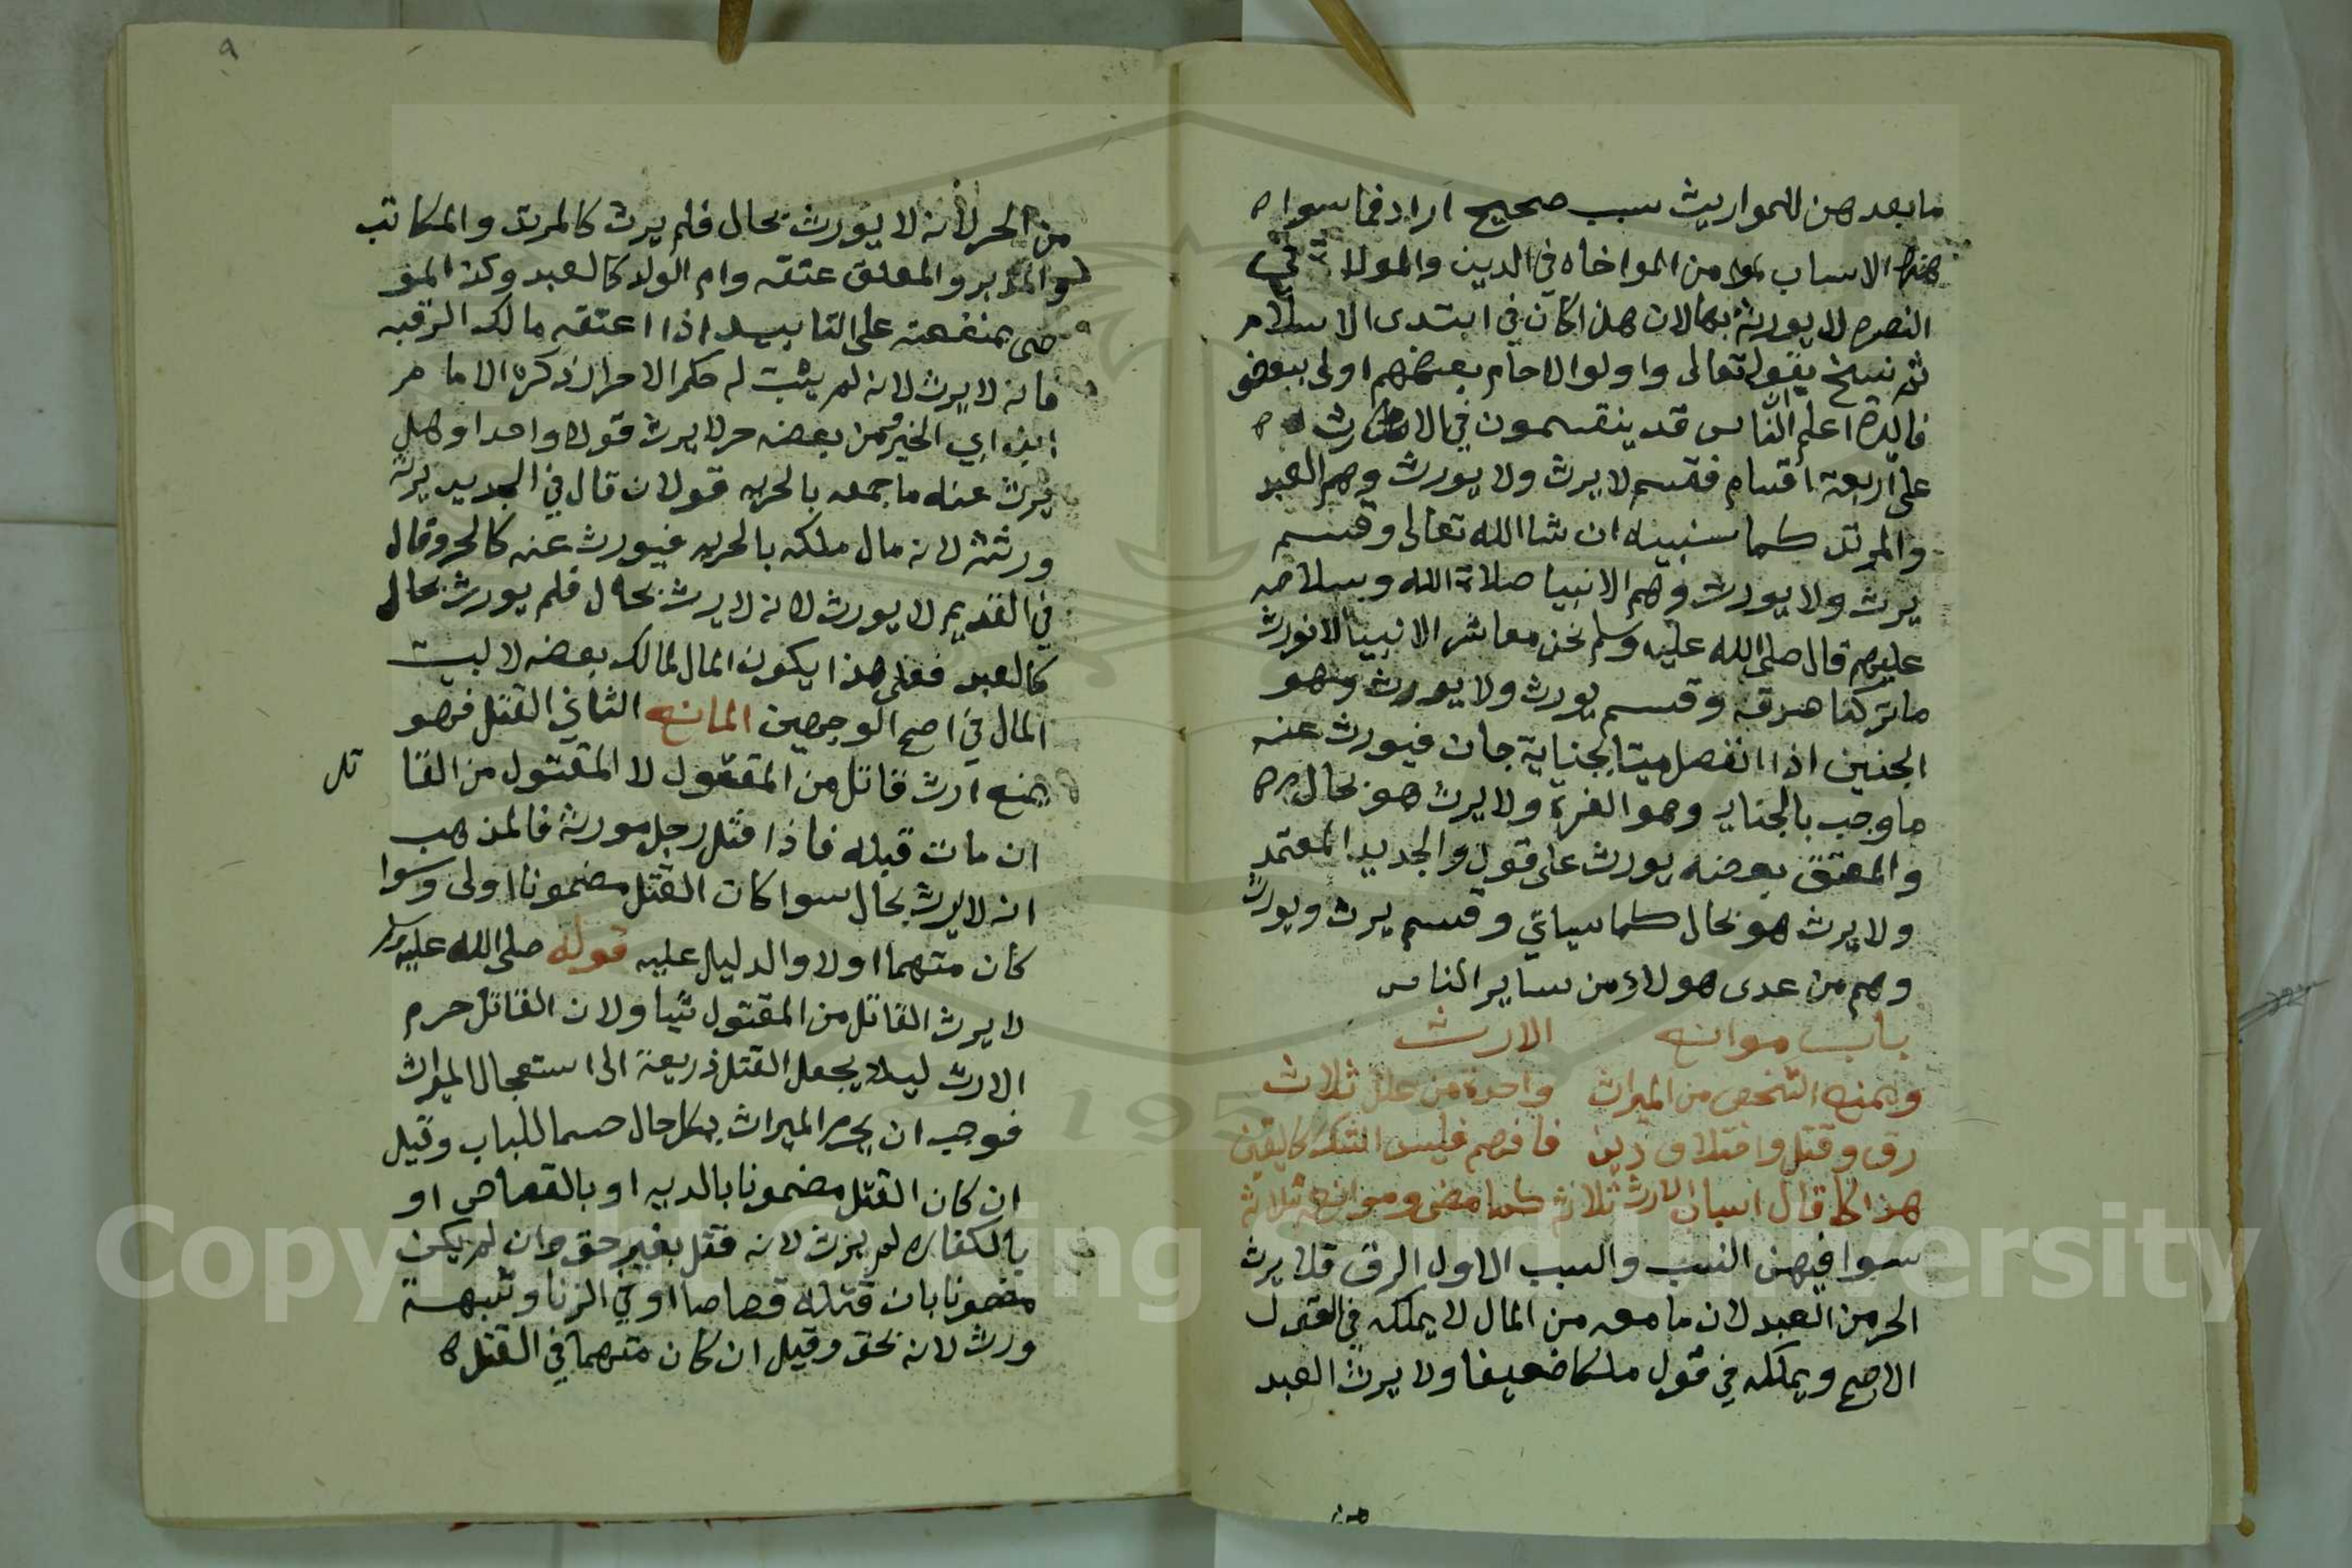 ما بعدهن للمواريث سبب صحيح اراد فما سواه
هذه الاسباب من المواخاه في الدين والموالاة في
النصره لا يورث بها لان هذا كان في ابتدى الاسلام
ثم نسخ بقوله تعالى واولوا الارحام بعضهم اولى ببعض
فائدة اعلم الناس قد ينقسمون في الارث
على اربعة اقسام فقسم لا يرث ولا يورث وهم العبد
والمرتد كما سنبينه ان شا الله تعالى وقسم
يرث ولا يورث وهم الانبيا صلاة الله وسلامه
عليهم قال صلى الله عليه وسلم نحن معاشر الانبيا لا نورث
ما تركنا صدقه وقسم يورث ولا يورث وهو
الجنين اذا انفصل ميتا بجناية جان فيورث عنه
ما وجب بالجنايه وهو الغرة ولا يرث هو بحال
والمعتق بعضه يورث على قول والجديد المعتمد
ولا يرث هو بحال كما سياتي وقسم يرث ويورث
وهم من عدى هولاء من ساير الناس
باب موانع الارث
ويمنع الشخص من الميراث واحدة من علل ثلاث
رق وقتل واختلاف دين فافهم فليس الشك كاليقين
هذا كما قال اسباب الارث ثلاثه كما مضى وموانعه ثلاثة
سوا فيهن النسب والسبب الاول الرق فلا يرث
الحر من العبد لان ما معه من المال لا يملكه في القول
الاصح ويملكه في قول ملكا ضعيفا ولا يرث العبد
من
٩
من الحر لأنه لا يورث بحال فلم يرث كالمرتد والمكاتب
والمدبر والمعلق عتقه وام الولد كالعبد وكذا المو
صى بمنفعته على التابيد اذا اعتقه مالك الرقبه
فانه لا يرث لانه لم يثبت له حكم الاحرار ذكره الامام
ابن ابي الخير فمن بعضه حر لا يرث قولا واحدا وهل
يرث عنه ما جمعه بالحريه قولان قال في الجديد يرثه
ورثته لانه مال ملكه بالحريه فيورث عنه كالحر وقال
في القديم لا يورث لانه لا يرث بحال فلم يورث بحال
كالعبد فعلى هذا يكون المال لمالك بعضه لا لبيت
المال في اصح الوجهين المانع الثاني القتل فهو
يمنع ارث قاتل من المقتول لا المقتول من القا تل
ان مات قبله فاذا قتل رجل مورثه فالمذهب
انه لا يرث بحال سوا كان القتل مضمونا اولى وسوا
كان متهما اولا والدليل عليه قوله صلى الله عليه وسلم
لا يرث القاتل من المقتول شيا ولان القاتل حرم
الارث ليلا يجعل القتل ذريعة الى استعجال الميراث
فوجب ان يحرم الميراث بكل حال حسما للباب وقيل
ان كان القتل مضمونا بالديه او بالقصاص او
بالكفاره لم يرث لانه قتل بغير حق وان لم يكن
مضمونا بان قتله قصاصا او في الزنا وشبهه
ورث لانه بحق وقيل ان كان متهما في القتل